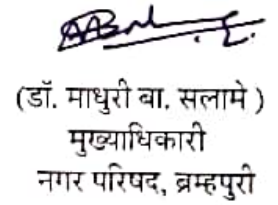 (डॉ. माधुरी बा. सलामे )
मुख्याधिकारी
नगर परिषद, ब्रम्हपुरी